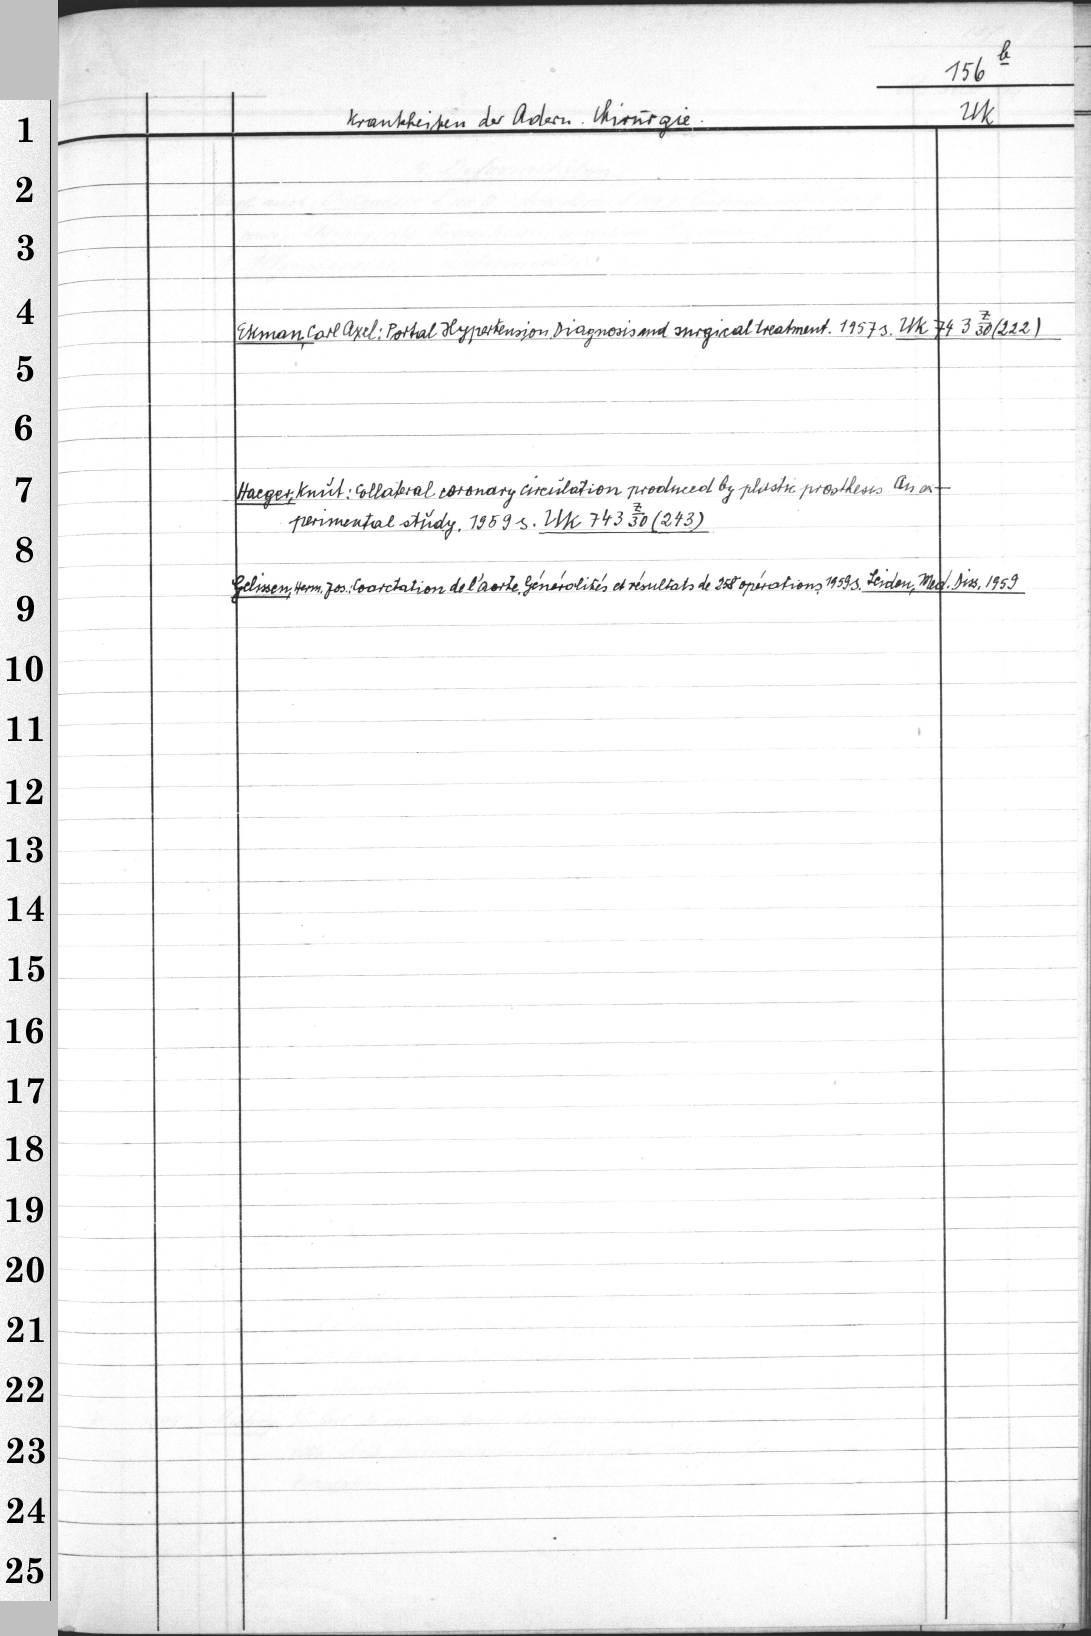 156 b
Krankheiten der Adern. Chirurgie.
Uk
1
2
3
4
Ekman, Carl Axel: Portal Hypertension. Diagnosis and surgical treatment. 1957 s. Uk 74 3 Z/30 (222)
5
6
7
Haeger, Knut: Collateral coronary circulation produced by plastic prosthesis An ex-
perimental study. 1959 s. Uk 743 Z/30 (243)
8
Gelissen, Herm. Jos.: Coarctation de l'aorte. Généralités et résultats de 258 opérations, 1959 s. Leiden, Med. Diss. 1959
9
10
11
12
13
14
15
16
17
18
19
20
21
22
23
24
25